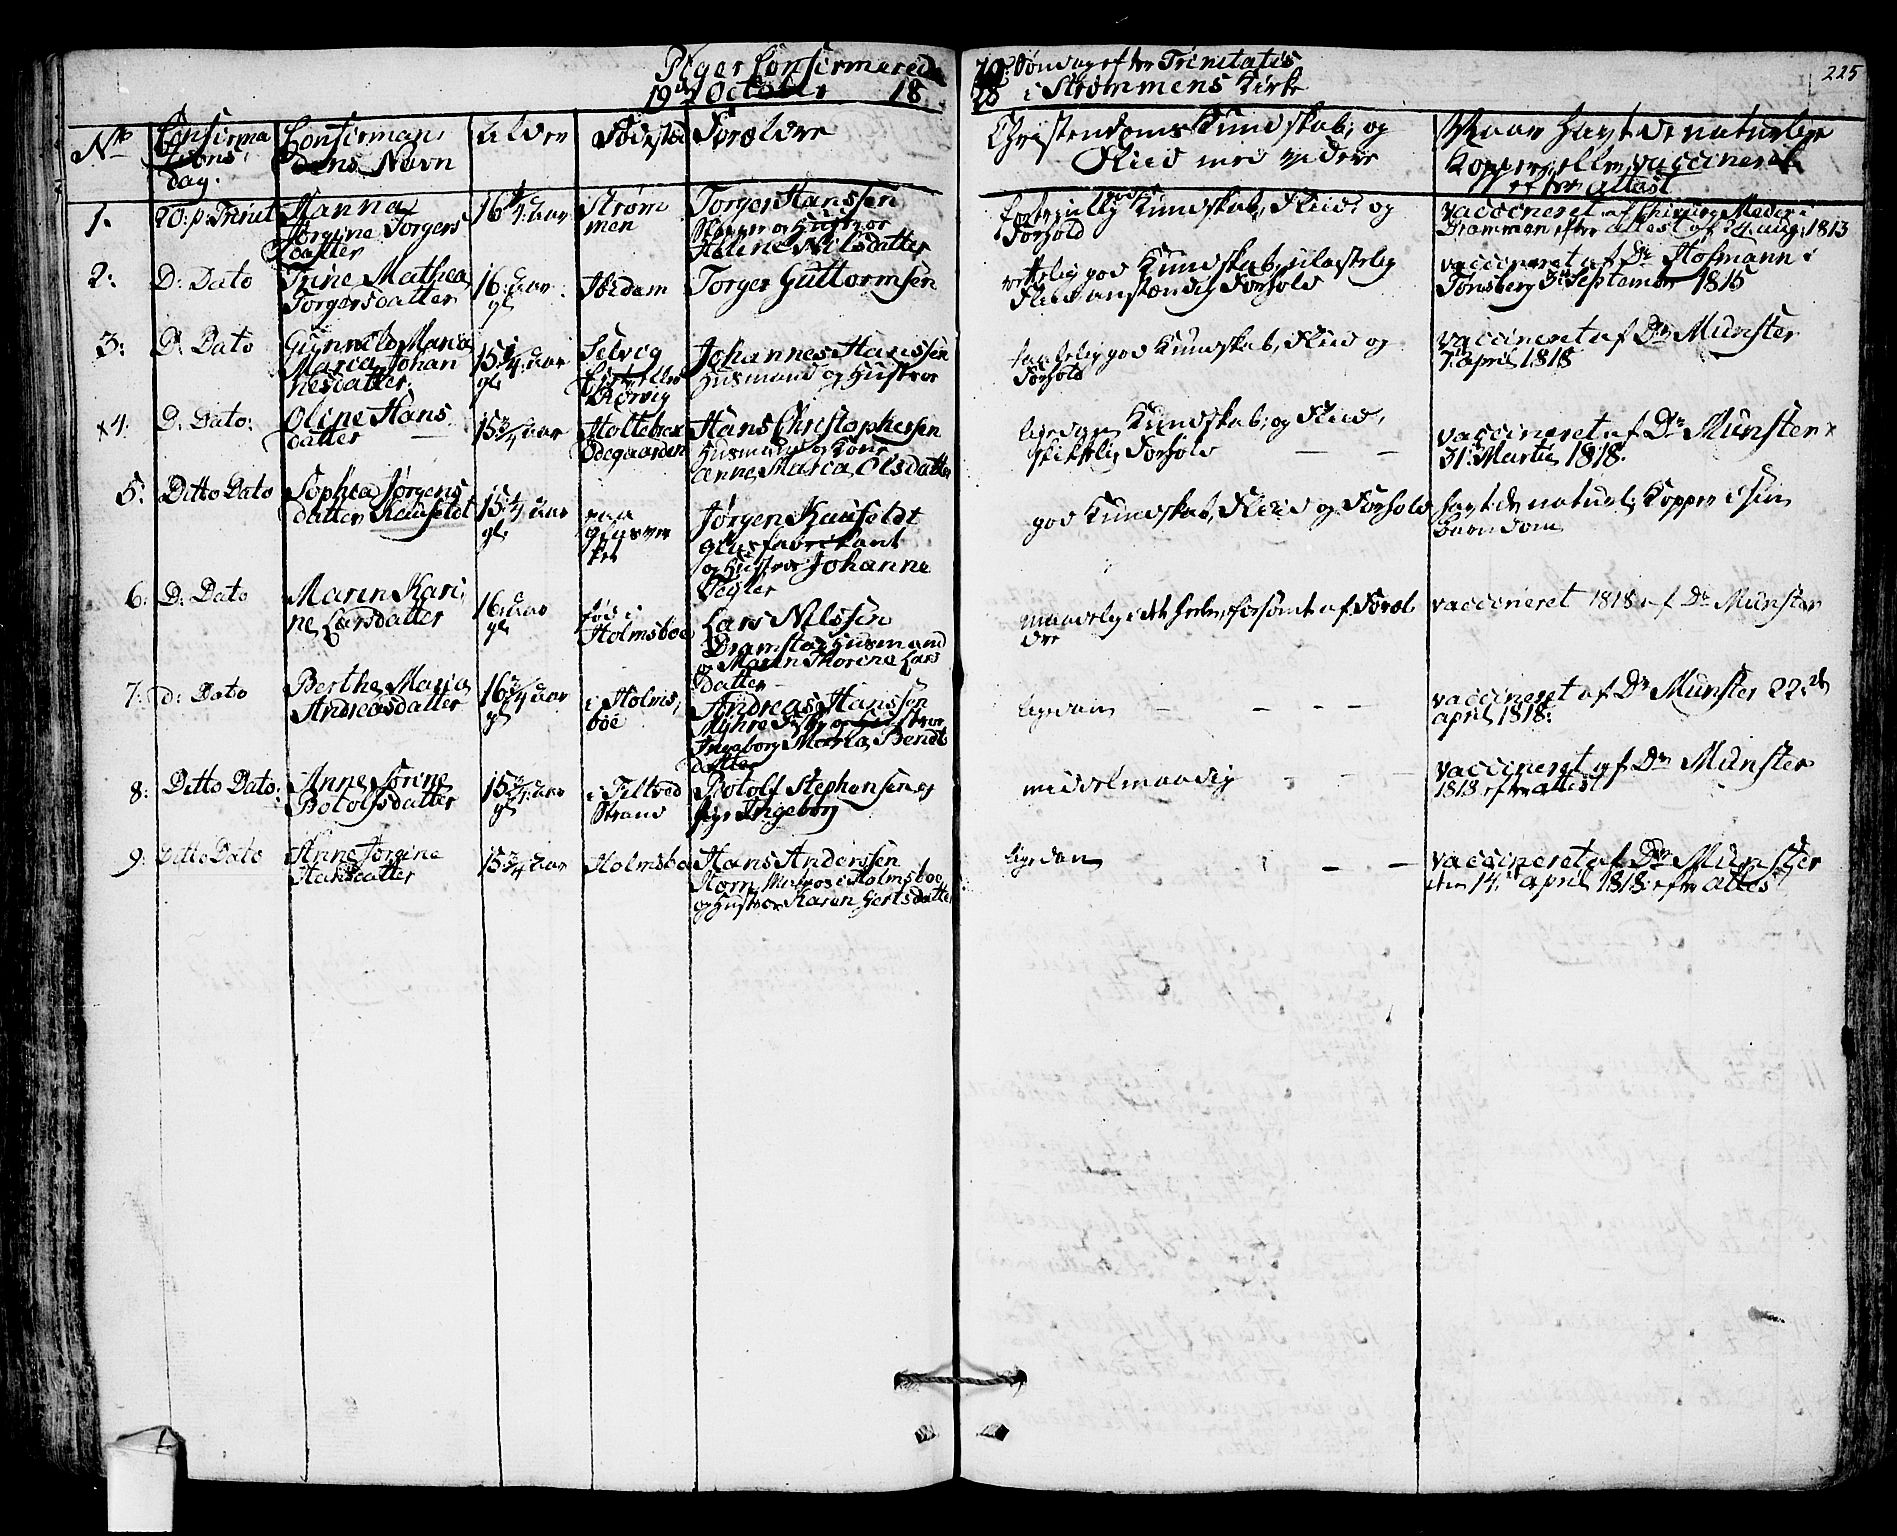 Piger Confirmerede 20de Søndag efter Trinitatis
19de October 18 28 i Strømmens Kirke
225
No
Confirmations dag.
Confirmandens Navn
Alder
Fødested
Forældre
Christendoms Kundskab, og
Fliid med videre
Naar havt de naturlige
Kopper, eller vaccineret
efter Attest
1. 20. p. Trinit
Hanna
Jørgine Torgers
datter
16 1/4 Aar
Strøm
men
Torger Hanssen
og Hustroe
Helene Nilsdatter
fortrinlig god Kundskab, Fliid, og
Forhold
vaccineret af Chirurg Meder i
Drammen efter attest af 24 aug. 1813
2: D: Dato
Trine Mathea
Torgersdatter
16 Aar
gl.
Torger Guttormsen
rettelig god Kundskab, ulastelig
Fliid anstændig Forhold
vaccineret af Dr Hofmann i
Tønsberg 3de September 1815
3: D: Dato
Gunnild Maria
Maria Johan
nesdatter
15 1/4 Aar
gl.
Selvig
eller
Rørvig
Johannes Hanssen
Husmand og Hustroe
god Kundskab, Fliid og
Forhold
vaccineret af Dr Munster
7 april 1818
x4: D: Dato:
Oline Hans
datter
15 3/4 Aar
Holtebek
Ødegaarden
Hans Christophersen
Husmand og Kone
Anne Maria Olsdatter
ligedan Kundskab, og Fliid,
skikkelig Forhold — —
vaccineret af Dr Munster x
31 Martii 1818.
5: Ditto Dato
Sophia Jørgens
datter Kaufeldt
15 3/4 Aar
gl.
paa
Glasver
ket
Jørgen Kaufeldt
Glasfabrikant
og Hustroe Johanne
Tegler
god Kundskab, Fliid og Forhold
havt de naturl. Kopper i sin
barndom
6: D: Dato
Maren Kari
ne Larsdatter
16 Aar
gl.
fød i
Holmsboe
Lars Nilssen
Dramstad Husmand
og Maren Thorine Lars
datter
maadelig i det hele, forsømt af Foræl
dre
vaccineret 1818 af Dr Munster
7: d: Dato
Berthe Maria
Andreasdatter
16 3/4 Aar
gl.
i Holms,
boe
Andreas Hanssen
Myhre og Hustroe
Ingeborg Maria Bendt
datter
ligedan — — — —
vaccineret af Dr Munster 22de
april 1818.
8: Ditto Dato:
Anne Sorine
Botolfsdatter
15 3/4 Aar
gl.
i Filtved
Strand
Botolf Stephensen og
Ingeborg
middelmaadig — — —
vaccineret af Dr Munster
1818 efter attest
9: Ditto Dato
Anne Jørgine
Hansdatter
15 3/4 Aar
Holmsboe
Hans Anderssen
Horn, Matros i Holmsboe
og Hustroe Karen Gertsdatter
ligedan — —
vaccineret af Dr Munster
den 14de april 1818 efter attest